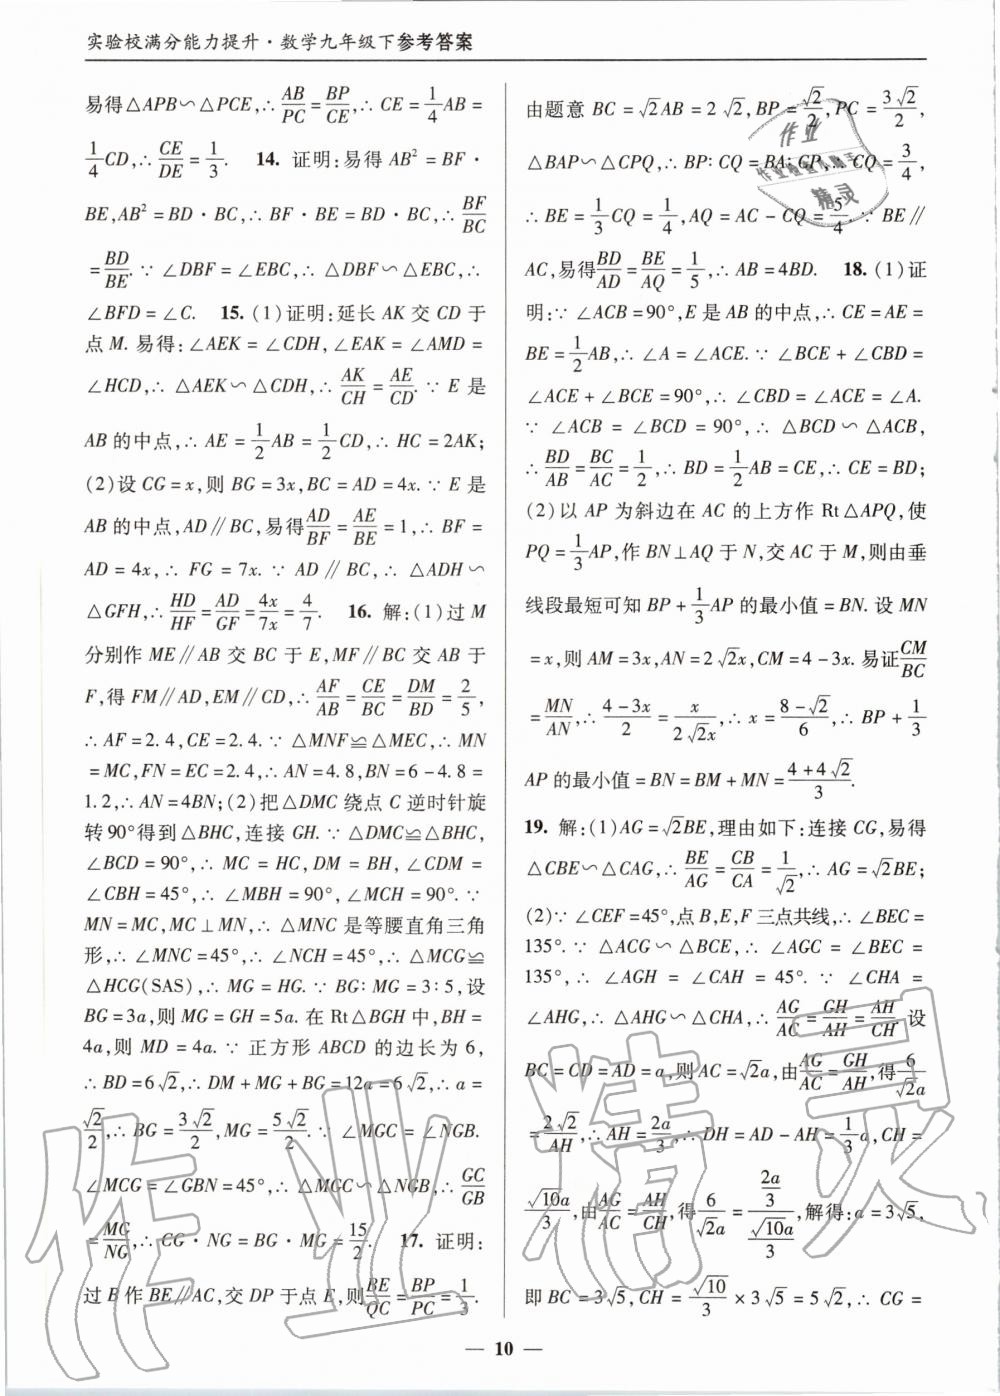 实验校满分能力提升·数学九年级下参考答案
易得△APB∽△PCE,∴ AB/PC = BP/CE, ∴ CE = 1/4 AB =
1/4 CD, ∴ CE/DE = 1/3. 14. 证明:易得 AB² = BF·
BE, AB² = BD·BC, ∴ BF·BE = BD·BC, ∴ BF/BC
= BD/BE. ∵ ∠DBF = ∠EBC, ∴ △DBF∽△EBC, ∴
∠BFD = ∠C. 15. (1)证明:延长 AK 交 CD 于
点 M. 易得:∠AEK = ∠CDH, ∠EAK = ∠AMD =
∠HCD, ∴ △AEK∽△CDH, ∴ AK/CH = AE/CD. ∵ E 是
AB 的中点, ∴ AE = 1/2 AB = 1/2 CD, ∴ HC = 2AK;
(2)设 CG = x, 则 BG = 3x, BC = AD = 4x. ∵ E 是
AB 的中点, AD∥BC, 易得 AD/BF = AE/BE = 1, ∴ BF =
AD = 4x, ∴ FG = 7x. ∵ AD∥BC, ∴ △ADH∽
△GFH, ∴ HD/HF = AD/GF = 4x/7x = 4/7. 16. 解:(1)过 M
分别作 ME∥AB 交 BC 于 E, MF∥BC 交 AB 于
F, 得 FM∥AD, EM∥CD, ∴ AF/AB = CE/BC = DM/BD = 2/5,
∴ AF = 2.4, CE = 2.4. ∵ △MNF≌△MEC, ∴ MN
= MC, FN = EC = 2.4, ∴ AN = 4.8, BN = 6 - 4.8 =
1.2, ∴ AN = 4BN; (2)把△DMC 绕点 C 逆时针旋
转 90°得到△BHC, 连接 GH. ∵ △DMC≌△BHC,
∠BCD = 90°, ∴ MC = HC, DM = BH, ∠CDM =
∠CBH = 45°, ∴ ∠MBH = 90°, ∠MCH = 90°. ∵
MN = MC, MC⊥MN, ∴ △MNC 是等腰直角三角
形, ∴ ∠MNC = 45°, ∴ ∠NCH = 45°, ∴ △MCG≌
△HCG(SAS), ∴ MG = HG. ∵ BG∶MG = 3∶5, 设
BG = 3a, 则 MG = GH = 5a. 在 Rt△BGH 中, BH =
4a, 则 MD = 4a. ∵ 正方形 ABCD 的边长为 6,
∴ BD = 6√2, ∴ DM + MG + BG = 12a = 6√2, ∴ a =
√2/2, ∴ BG = 3√2/2, MG = 5√2/2. ∵ ∠MGC = ∠NGB.
∠MCG = ∠GBN = 45°, ∴ △MGC∽△NGB, ∴ GC/GB
= MG/NG, ∴ CG·NG = BG·MG = 15/2. 17. 证明:
过 B 作 BE∥AC, 交 DP 于点 E, 则 BE/QC = BP/PC = 1/3.
由题意 BC = √2AB = 2√2, BP = √2/2, PC = 3√2/2,
△BAP∽△CPQ, ∴ BP∶CQ = BA∶CP, ∴ CQ = 3/4,
∴ BE = 1/3 CQ = 1/4, AQ = AC - CQ = 5/4. ∵ BE∥
AC, 易得 BD/AD = BE/AQ = 1/5, ∴ AB = 4BD. 18. (1)证
明:∵ ∠ACB = 90°, E 是 AB 的中点, ∴ CE = AE =
BE = 1/2 AB, ∴ ∠A = ∠ACE. ∵ ∠BCE + ∠CBD =
∠ACE + ∠BCE = 90°, ∴ ∠CBD = ∠ACE = ∠A.
∵ ∠ACB = ∠BCD = 90°, ∴ △BCD∽△ACB,
∴ BD/AB = BC/AC = 1/2, ∴ BD = 1/2 AB = CE, ∴ CE = BD;
(2)以 AP 为斜边在 AC 的上方作 Rt△APQ, 使
PQ = 1/3 AP, 作 BN⊥AQ 于 N, 交 AC 于 M, 则由垂
线段最短可知 BP + 1/3 AP 的最小值 = BN. 设 MN
= x, 则 AM = 3x, AN = 2√2x, CM = 4 - 3x. 易证 CM/BC
= MN/AN, ∴ (4-3x)/2 = x/(2√2x), ∴ x = (8-√2)/6, ∴ BP + 1/3
AP 的最小值 = BN = BM + MN = (4+4√2)/3.
19. 解:(1)AG = √2BE, 理由如下:连接 CG, 易得
△CBE∽△CAG, ∴ BE/AG = CB/CA = 1/√2, ∴ AG = √2BE;
(2)∵ ∠CEF = 45°, 点 B, E, F 三点共线, ∴ ∠BEC =
135°. ∵ △ACG∽△BCE, ∴ ∠AGC = ∠BEC =
135°, ∴ ∠AGH = ∠CAH = 45°. ∵ ∠CHA =
∠AHG, ∴ △AHG∽△CHA, ∴ AG/AC = GH/AH = AH/CH. 设
BC = CD = AD = a, 则 AC = √2a, 由 AG/AC = GH/AH, 得 6/(√2a)
= 2√2/AH, ∴ AH = 2a/3, ∴ DH = AD - AH = 1/3 a, CH =
√10a/3, 由 AG/AC = AH/CH, 得 6/(√2a) = (2a/3)/(√10a/3), 解得:a = 3√5,
即 BC = 3√5, CH = √10/3 × 3√5 = 5√2, ∴ CG =
— 10 —
作业
作业检查小助手
精灵
作业精灵